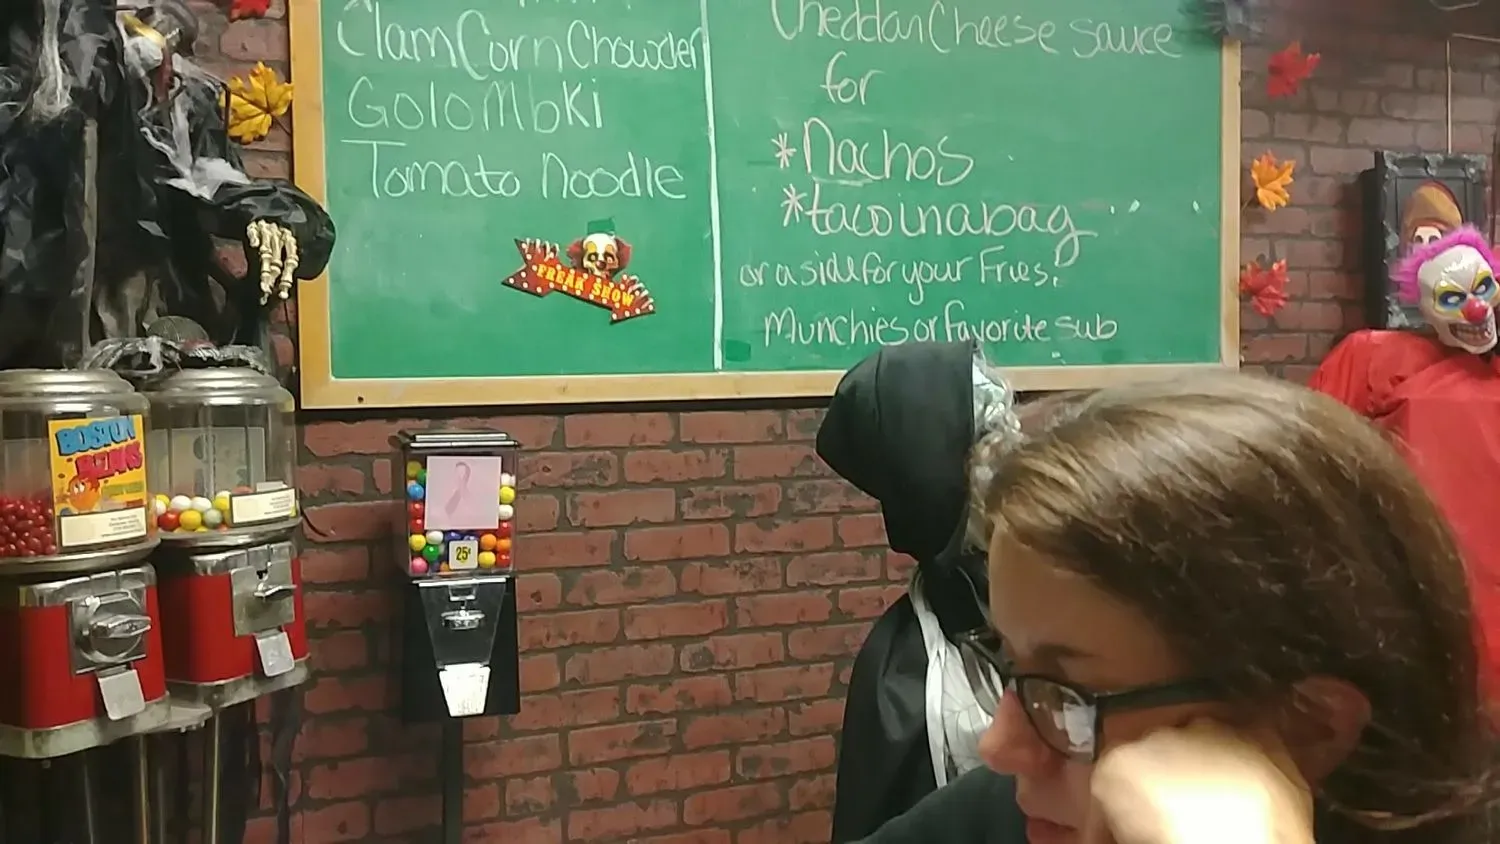 Clam Corn Chowder
Golombki
Tomato Noodle
FREAK SHOW
Cheddar Cheese sauce
for
*Nachos
*taco in a bag
or a side for your Fries.
Munchies or favorite sub
BOSTON
BEANS
25¢